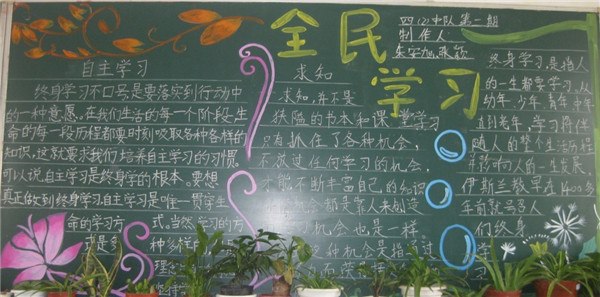 全民学习
四(2)中队第一期
制作人
自主学习
终身学习不口号是要落实到行动中
的一种意愿。在我们生活的每一个阶段,生
命的每一段历程都要时刻吸取各种各样的
知识。这就要求我们培养自主学习的习惯
可以说自主学习是终身学的根本。要想
真正做到终身学习自主学习是唯一
命的学习方式。当然,学习的方
式是多种多样的
求知
求知,并不是
狭隘的书本和课堂学习
只有抓住了各种机会,
不放过任何学习的机会,
才能不断丰富自己的知识
机会都是靠人来创造
机会也是一样。
种机会是指通过
终身学习,是指人
的一生都要学习。从
幼年、少年、青年、中年
直到老年,学习将伴
随人的整个生活历程
并影响人的一生发展。
伊斯兰教早在1400多
年前就号召人
们终身
学
习